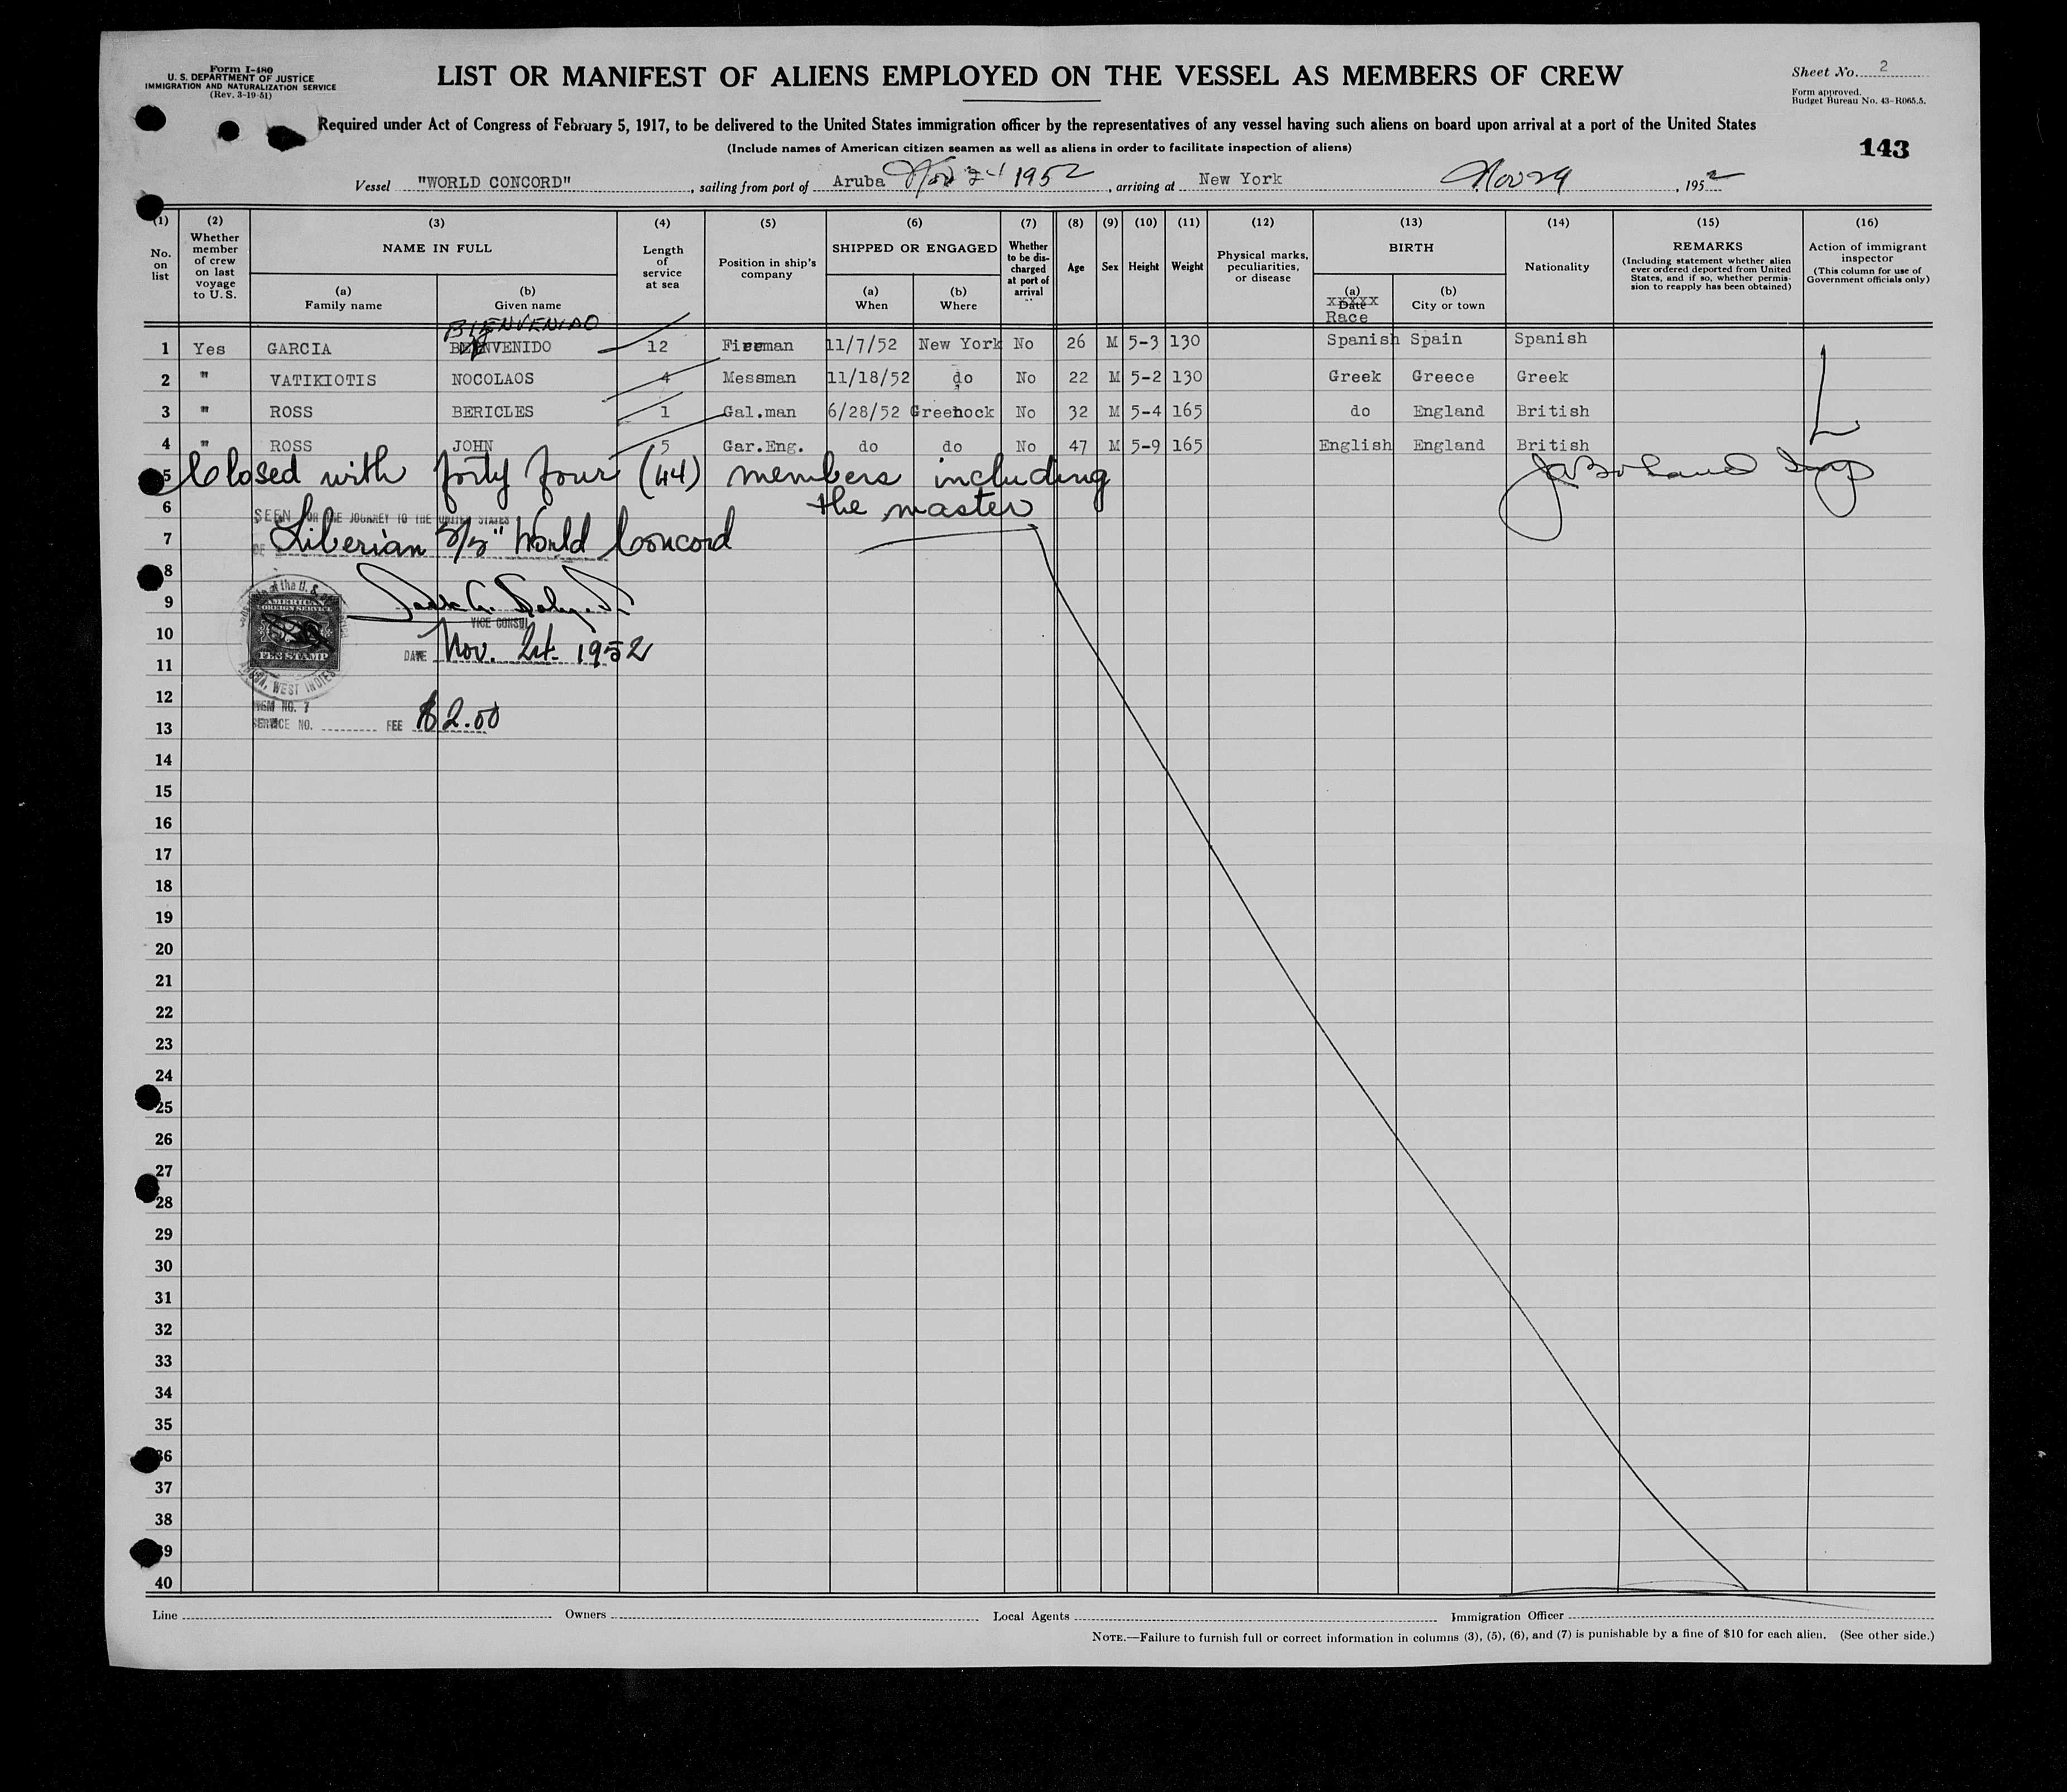 Form I-480
U. S. DEPARTMENT OF JUSTICE
IMMIGRATION AND NATURALIZATION SERVICE
(Rev. 3-19-51)
LIST OR MANIFEST OF ALIENS EMPLOYED ON THE VESSEL AS MEMBERS OF CREW
Sheet No. 2
Form approved.
Budget Bureau No. 43-R065.5.
Required under Act of Congress of February 5, 1917, to be delivered to the United States immigration officer by the representatives of any vessel having such aliens on board upon arrival at a port of the United States
(Include names of American citizen seamen as well as aliens in order to facilitate inspection of aliens)
143
Vessel "WORLD CONCORD", sailing from port of Aruba Nov 24 1952, arriving at New York Nov 29, 1952
(1) No. on list
(2) Whether member of crew on last voyage to U. S.
(3) NAME IN FULL
(a) Family name
(b) Given name
(4) Length of service at sea
(5) Position in ship's company
(6) SHIPPED OR ENGAGED
(a) When
(b) Where
(7) Whether to be discharged at port of arrival
(8) Age
(9) Sex
(10) Height
(11) Weight
(12) Physical marks, peculiarities, or disease
(13) BIRTH
(a) Date
XXXXX
Race
(b) City or town
(14) Nationality
(15) REMARKS
(Including statement whether alien ever ordered deported from United States, and if so, whether permission to reapply has been obtained)
(16) Action of immigrant inspector
(This column for use of Government officials only)
BIENVENIDO
1 Yes GARCIA BIENVENIDO 12 Fireman 11/7/52 New York No 26 M 5-3 130 Spanish Spain Spanish
2 " VATIKIOTIS NOCOLAOS 4 Messman 11/18/52 do No 22 M 5-2 130 Greek Greece Greek
3 " ROSS BERICLES 1 Gal.man 6/28/52 Greenock No 32 M 5-4 165 do England British
4 " ROSS JOHN 5 Gar.Eng. do do No 47 M 5-9 165 English England British
5 Closed with forty four (44) members including
6 the master
SEEN FOR THE JOURNEY TO THE UNITED STATES
7 Liberian S/S "World Concord
8
9
AMERICAN
FOREIGN SERVICE
FEE STAMP
ARUBA, WEST INDIES
VICE CONSUL
10
DATE Nov. 24. 1952
11
12
ITEM NO. 7
13
SERVICE NO. FEE $2.00
14
15
16
17
18
19
20
21
22
23
24
25
26
27
28
29
30
31
32
33
34
35
36
37
38
39
40
Line Owners Local Agents Immigration Officer
NOTE.—Failure to furnish full or correct information in columns (3), (5), (6), and (7) is punishable by a fine of $10 for each alien. (See other side.)